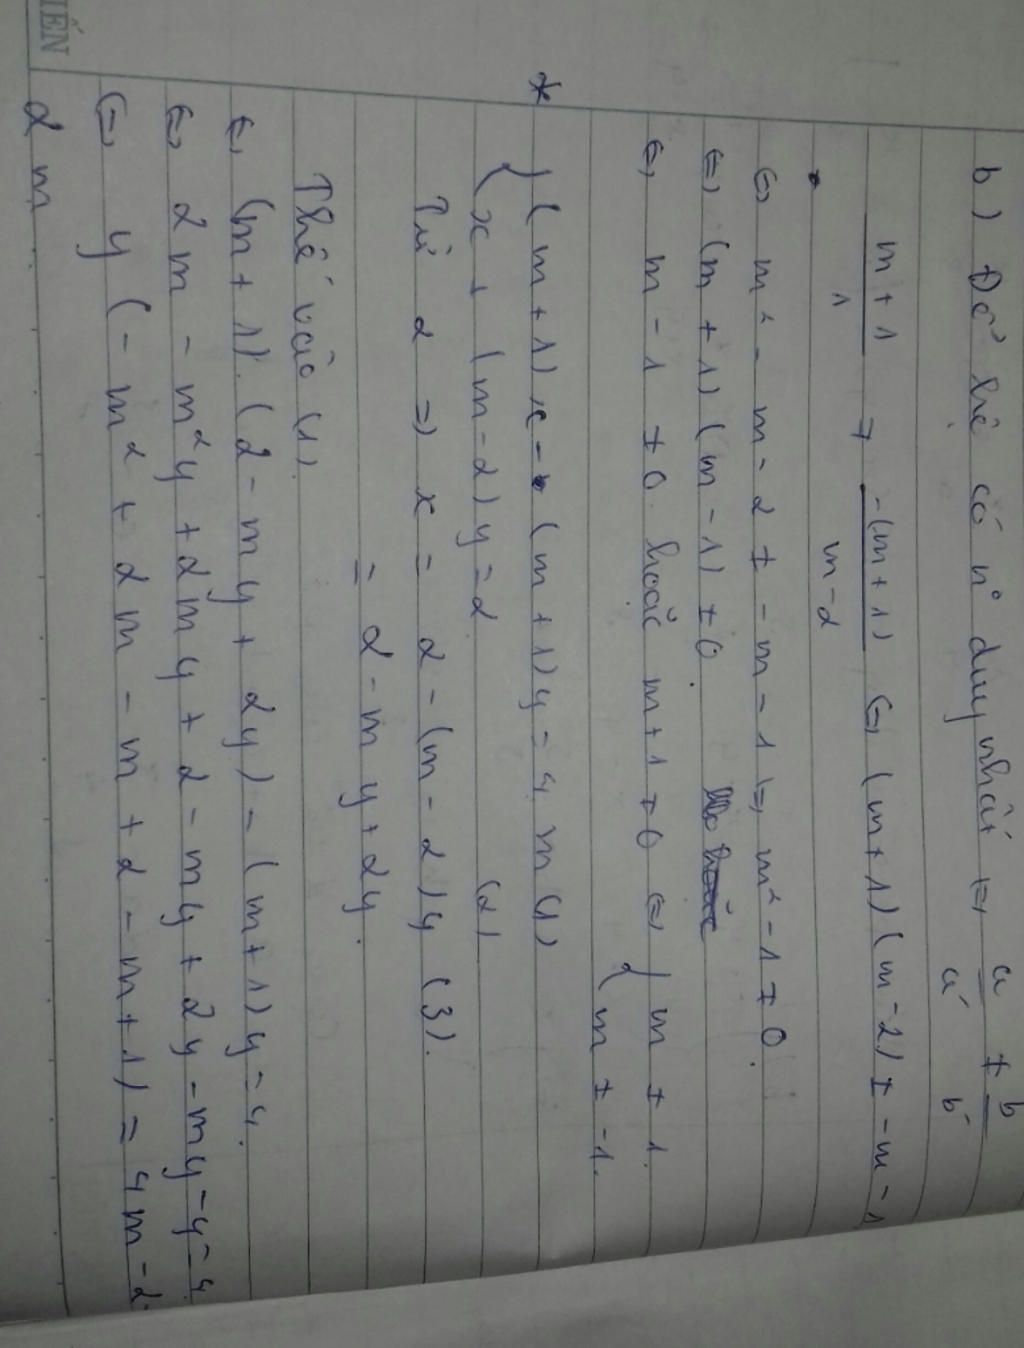 b) Để hệ có n° duy nhất ⇔ a/a' ≠ b/b'
(m+1)/1 ≠ -(m+1)/(m-2) ⇔ (m+1)(m-2) ≠ -m-1
⇔ m² - m - 2 ≠ -m - 1 ⇔ m² - 1 ≠ 0.
⇔ (m+1)(m-1) ≠ 0.
⇔ m - 1 ≠ 0 hoặc m+1 ≠ 0 ⇔ { m ≠ 1.
m ≠ -1.
* { (m+1)x - (m+1)y = 4m (1)
x + (m-2)y = 2 (2)
Từ 2 => x = 2 - (m-2)y (3).
= 2 - my + 2y.
Thế vào (1)
⇔ (m+1).(2 - my + 2y) - (m+1)y = 4.
⇔ 2m - m²y + 2my + 2 - my + 2y - my - y = 4.
⇔ y(-m² + 2m - m + 2 - m + 1) = 4m - 2.
2m
IẾN